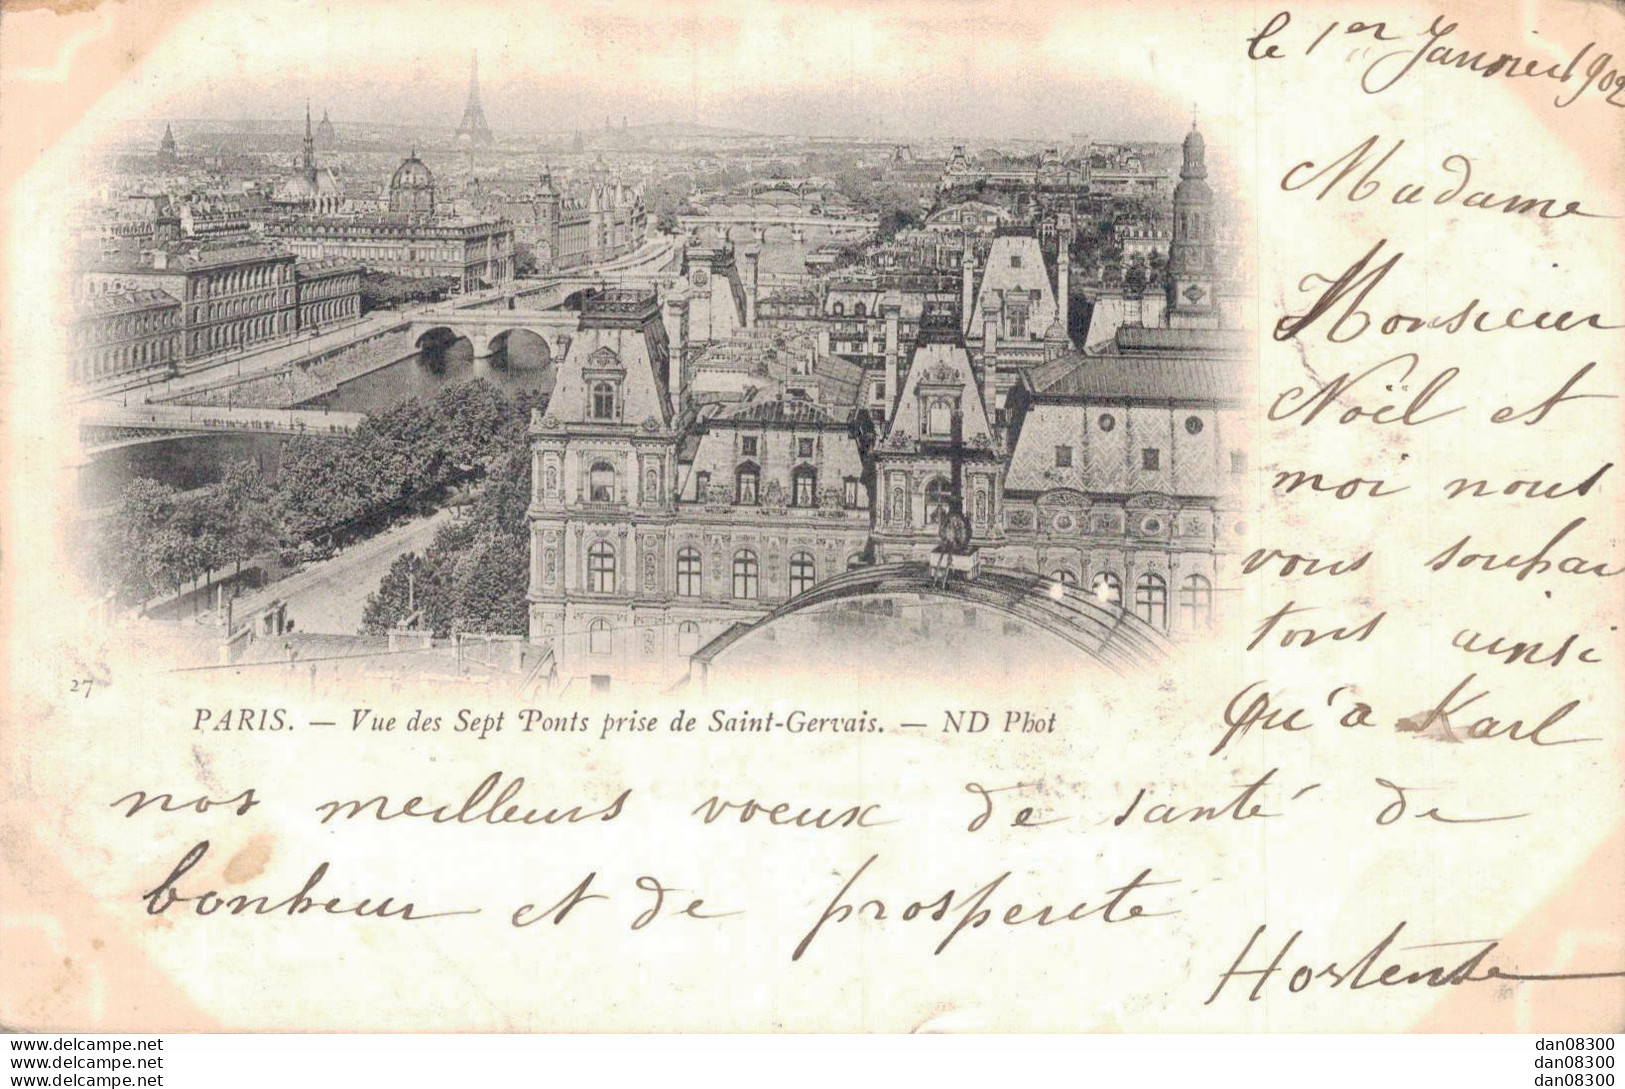 le 1er Janvier 1902
Madame
Monsieur
Noël et
moi nous
vous souhai
tons ainsi
qu'à Karl
27
PARIS. — Vue des Sept Ponts prise de Saint-Gervais. — ND Phot
nos meilleurs voeux de santé de
bonheur et de prosperite
Hortense
www.delcampe.net dan08300
www.delcampe.net dan08300
www.delcampe.net dan08300